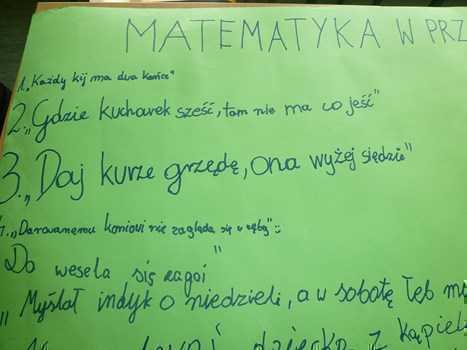 MATEMATYKA W PRZ
1. „Każdy kij ma dwa końce”
2. „Gdzie kucharek sześć, tam nie ma co jeść”
3. „Daj kurze grzędę, ona wyżej siędzie”
4. „Darowanemu koniowi nie zagląda się w zęby” :)
Do wesela się zagoi”
„Myślał indyk o niedzieli, a w sobotę łeb
dziecka z kąpiel